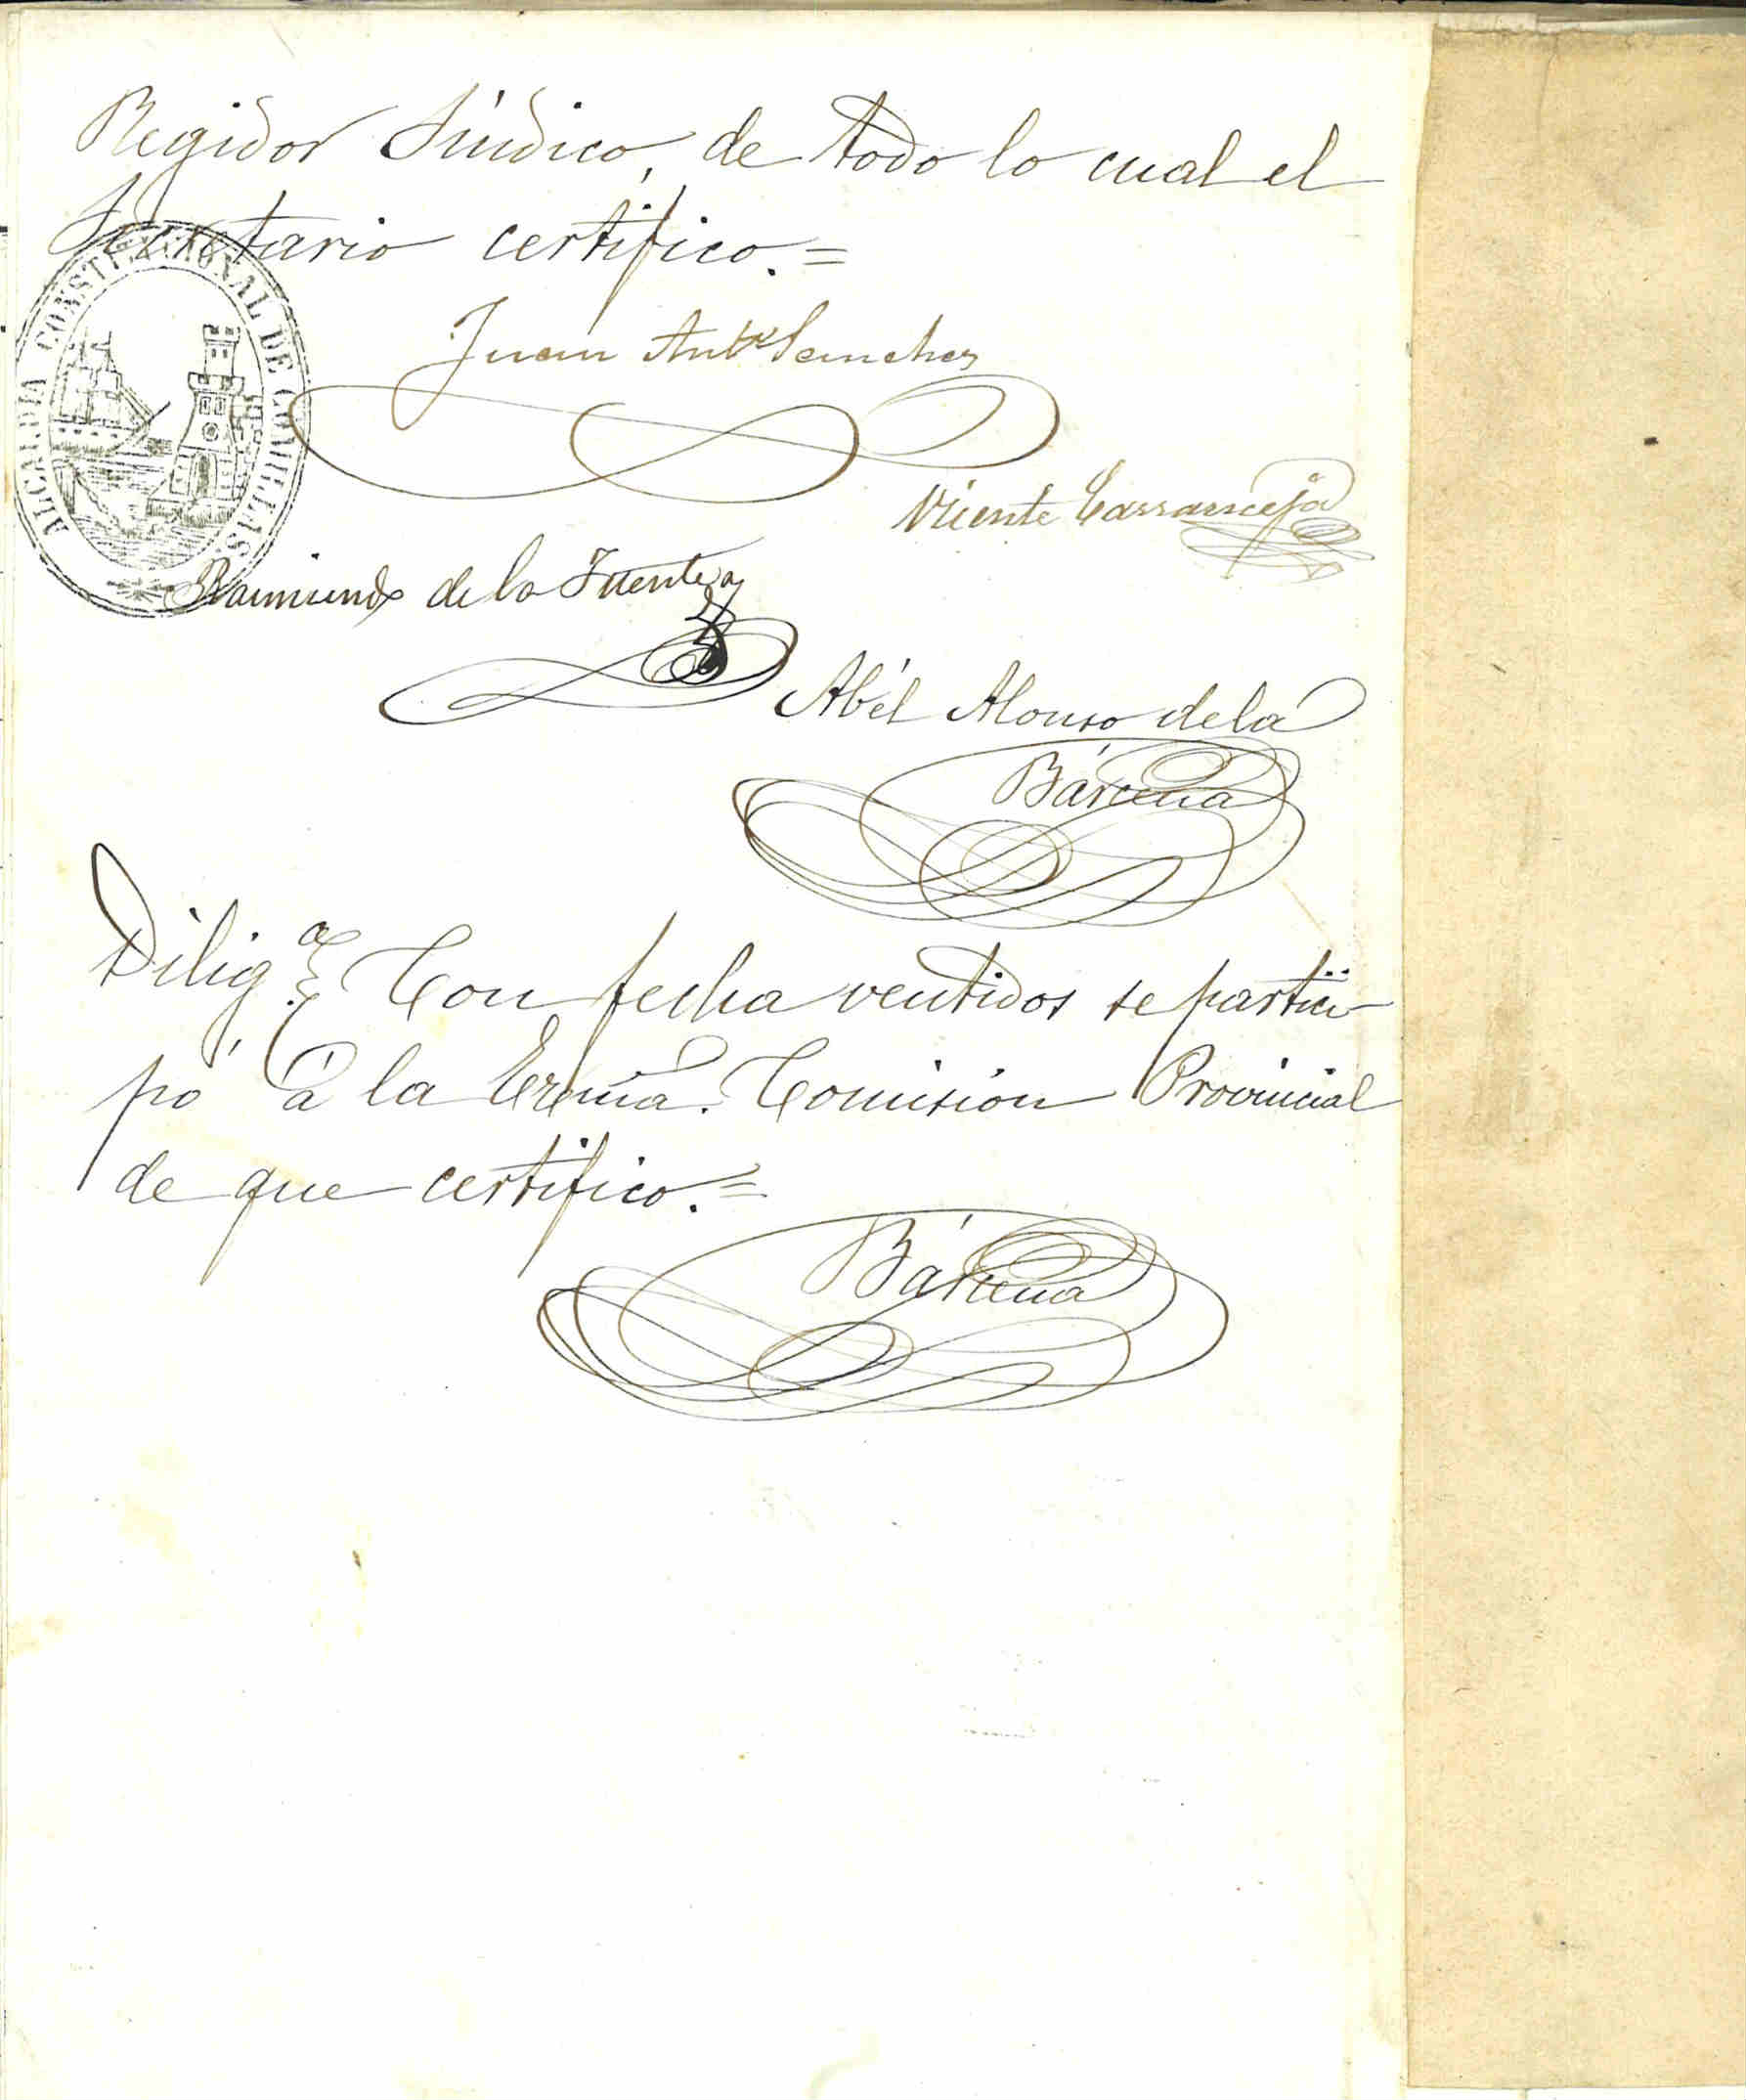 Regidor Síndico, de todo lo cual el
Secretario certifico.=
ALCALDIA CONSTITUCIONAL DE COMILLAS
Juan Antº Sanchez
Vicente Carranceja
Raimundo de la Fuente
Abél Alonso de la
Bárcena
Diligª Con fecha ventidos se partici-
pó á la Excma. Comisión Provincial
de que certifico.=
Bárcena